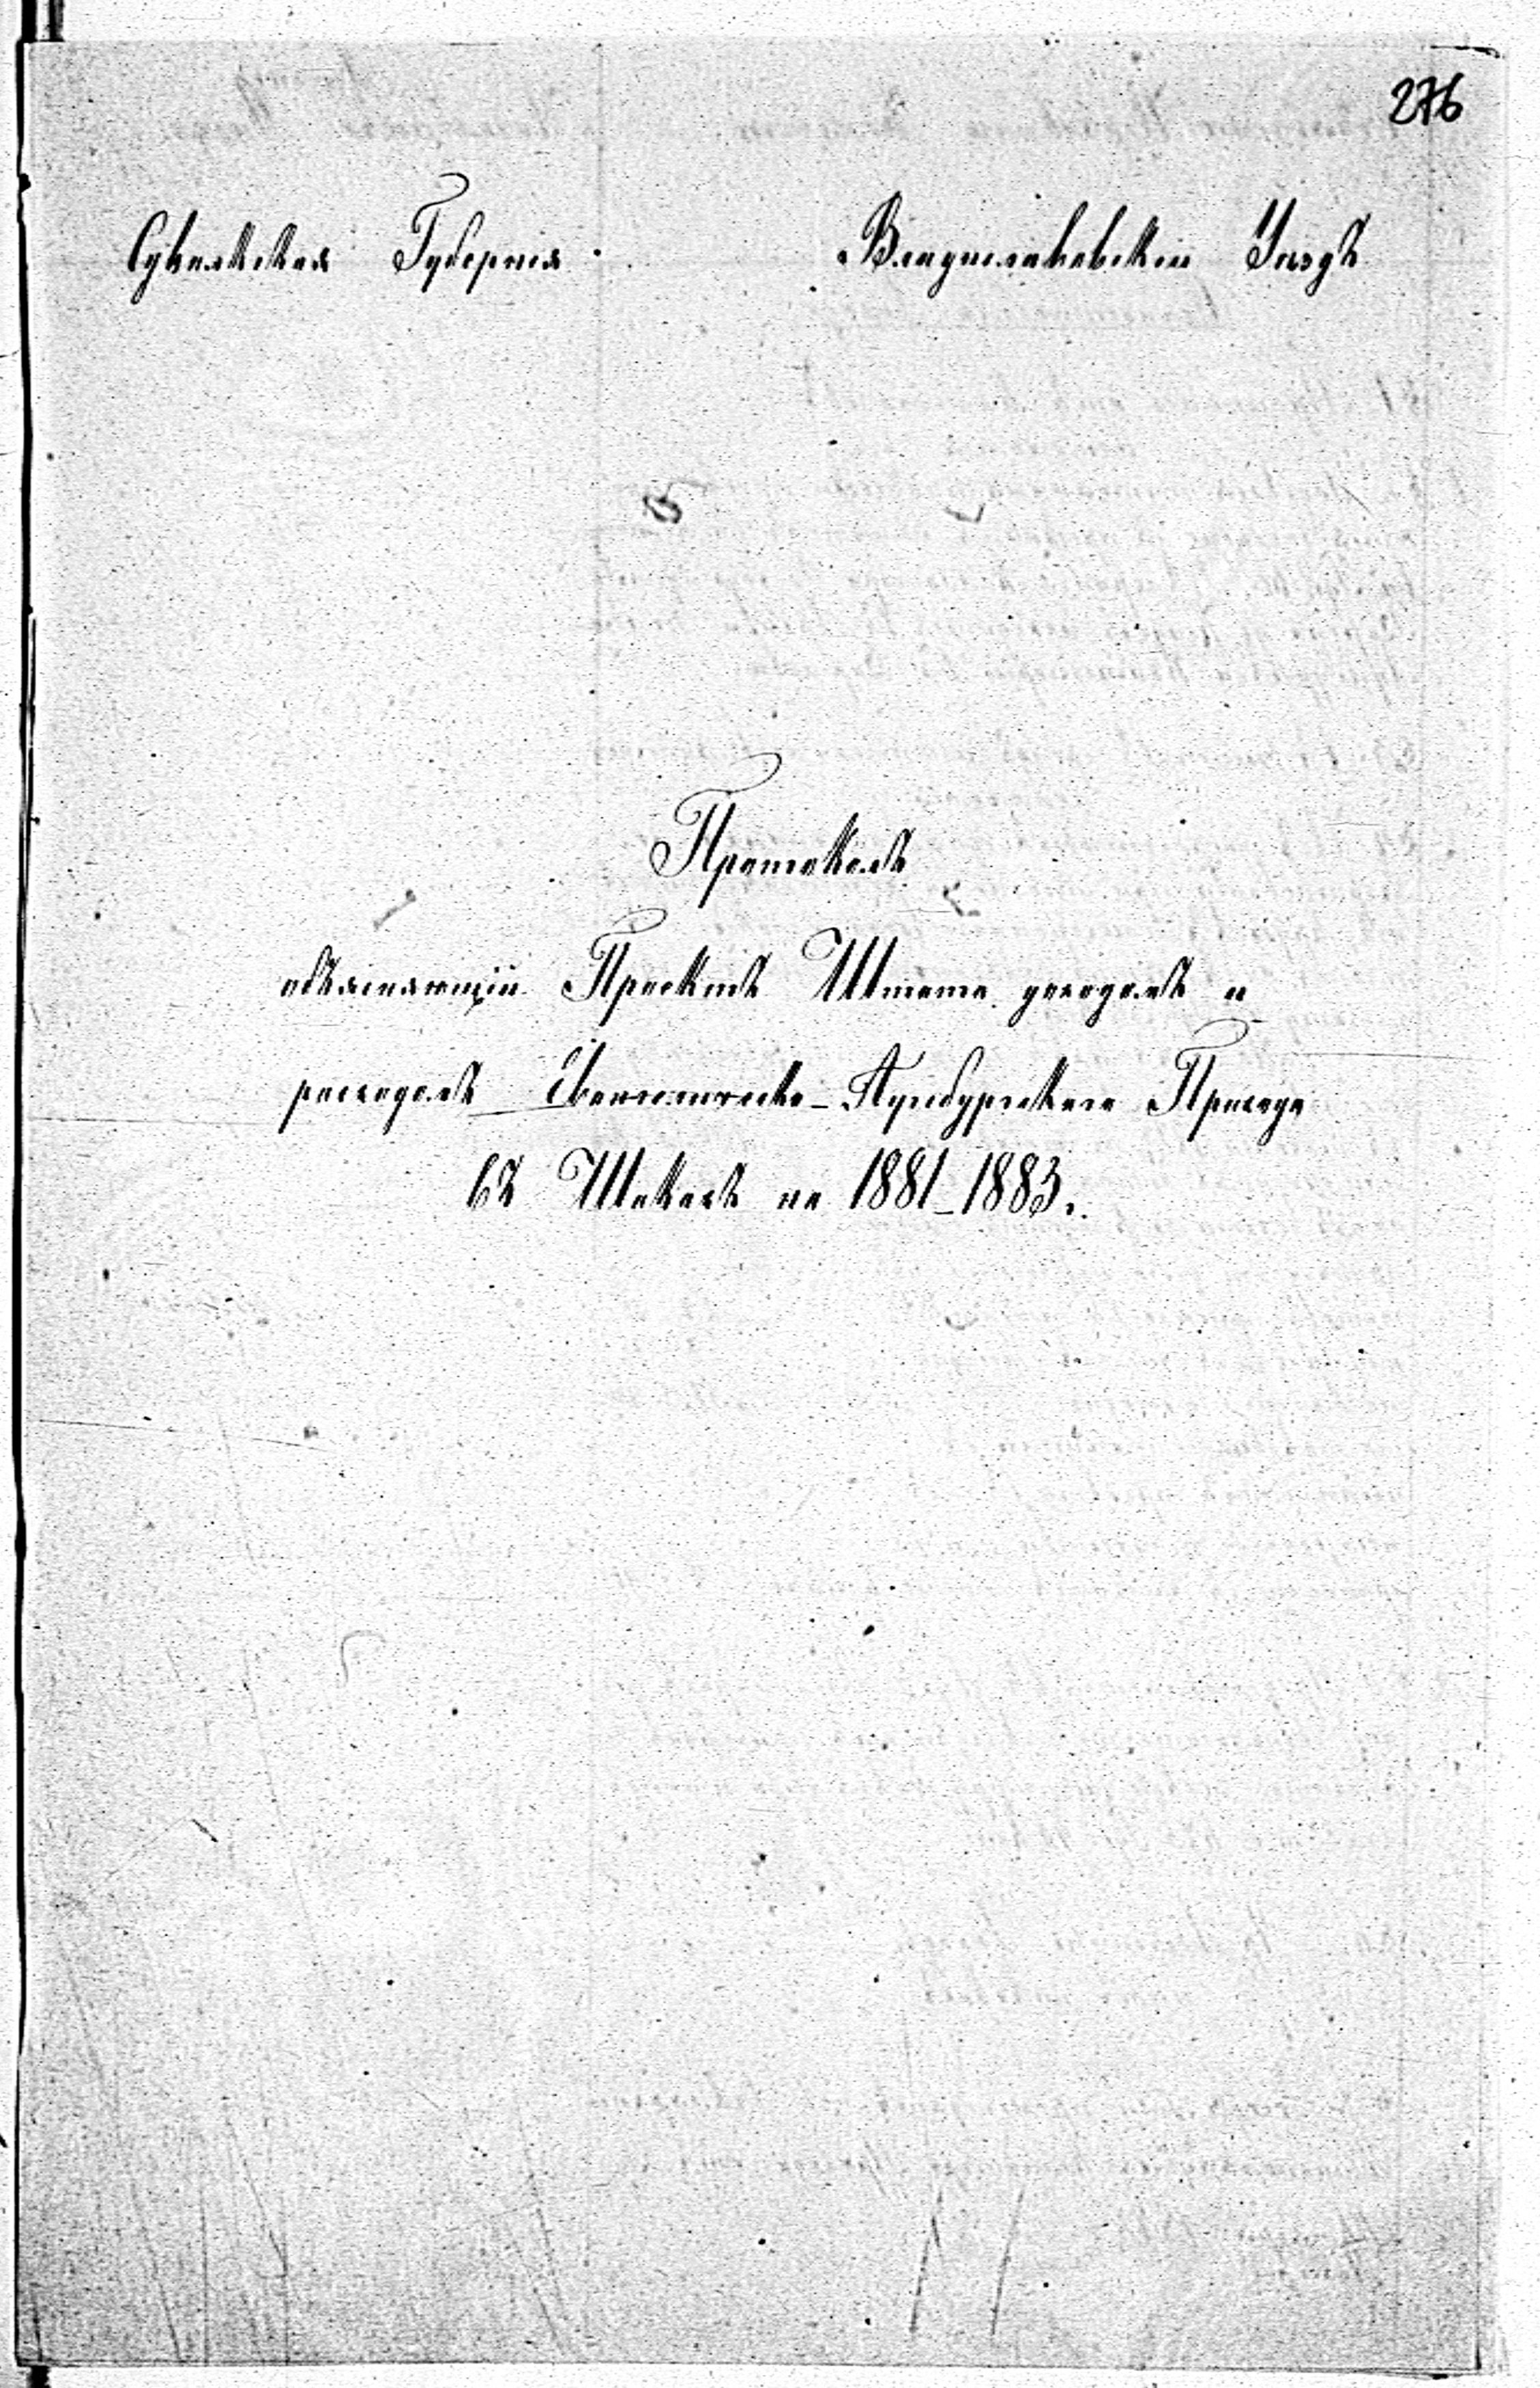 276
Сувалкская Губернія. Владиславовскій Уѣздъ
Протоколъ
объясняющій Проектъ Штата доходамъ и
расходамъ Евангелическо-Аугсбургскаго Прихода
въ Шакахъ на 1881-1883.